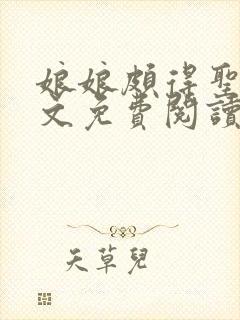 娘娘頗得聖
文免費閱讀
天草兒